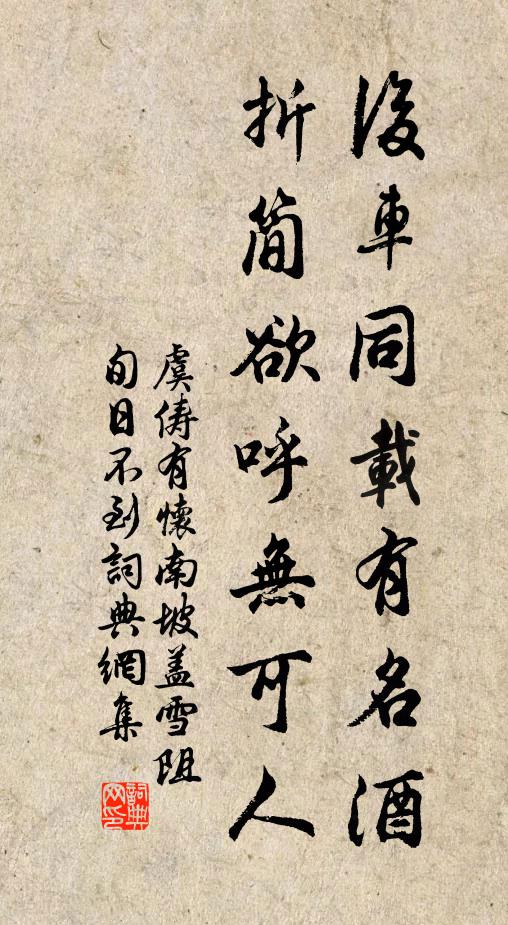 後車同載有名酒
折簡欲呼無可人
虞儔有懷南坡盖雪阻
旬日不到詞典網集
詞典
网印